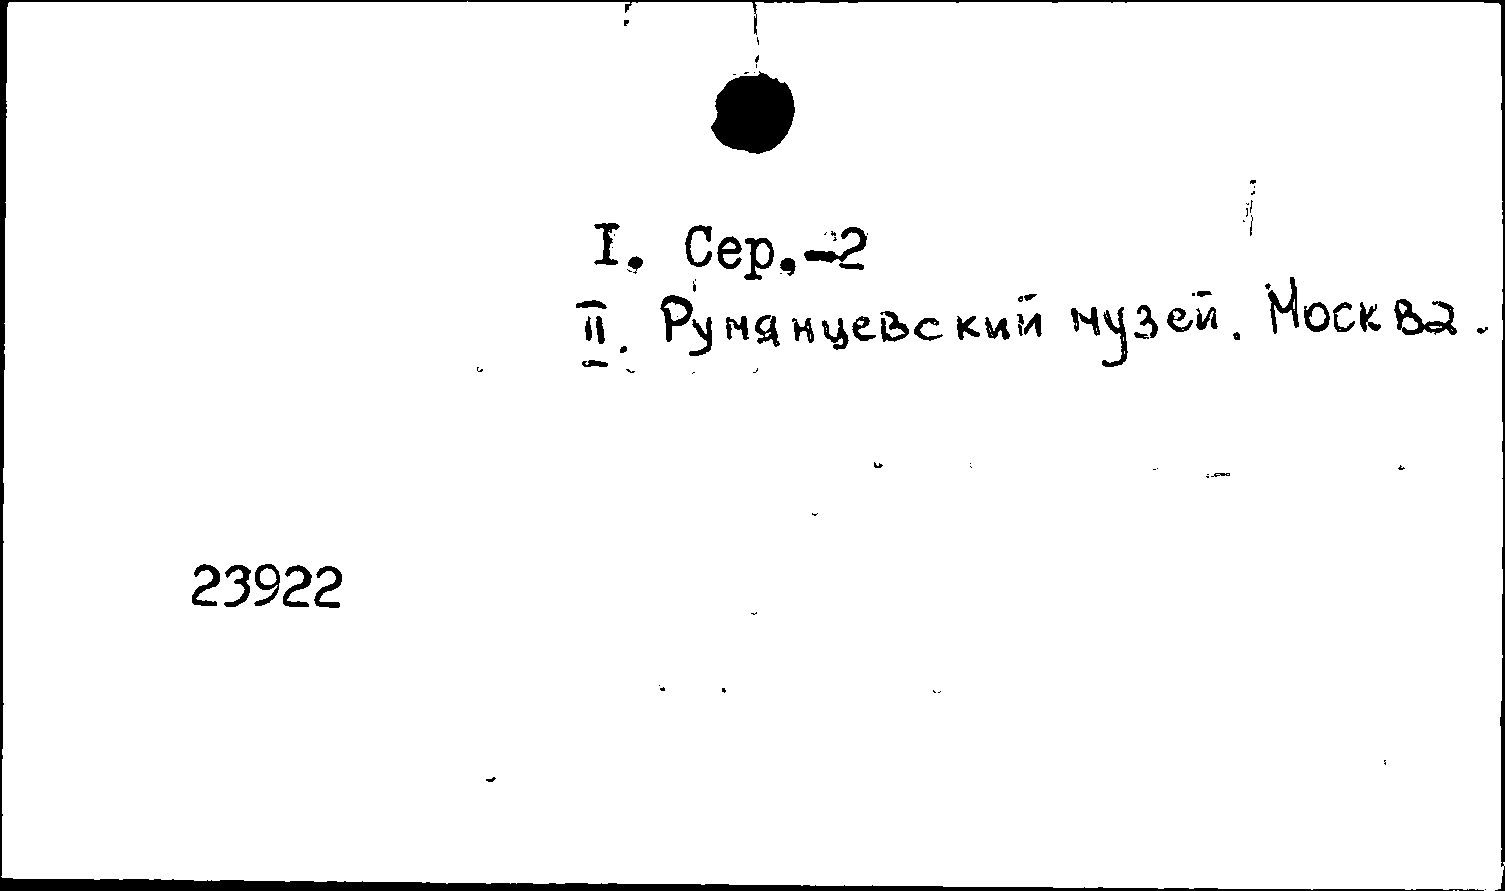 I. Сер.-2
II. Румянцевский музей. Москва.
23922